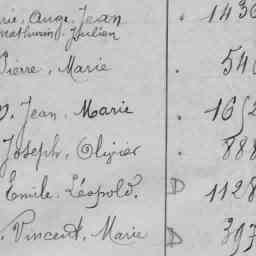 rie, Ange, Jean . 1430
Mathurin, Julien
Pierre, Marie . 540
Jean, Marie . 1652
Joseph, Olivier . 888
Emile, Léopold. D 1128
Vincent, Marie D 397